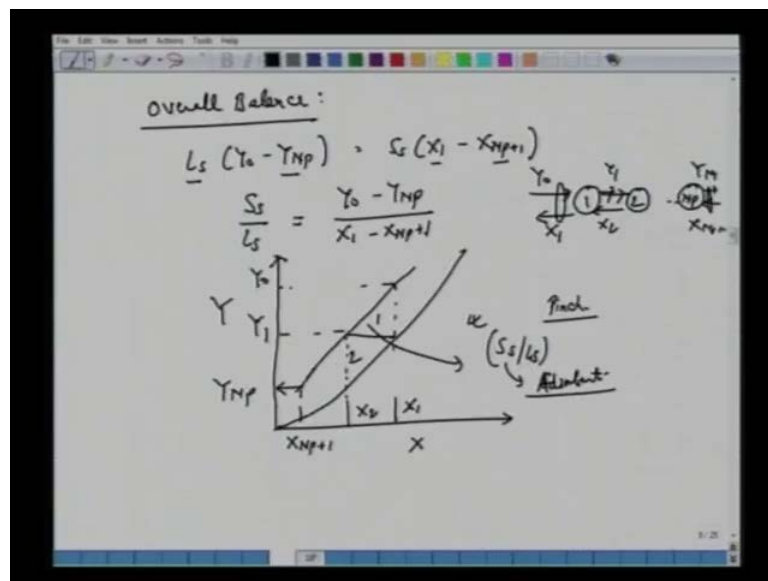 File Edit View Insert Actions Tools Help
Overall Balance:
Ls (Y0 - YNp) = Ss (X1 - XNp+1)
Ss/Ls = (Y0 - YNp)/(X1 - XNp+1)
Y0 Y1
1 2 Np
X1 X2
Y0
Y
Y1
YNp
1
2
XNp+1 X2 X1 X
Pinch
(Ss/Ls)
Adsorbent